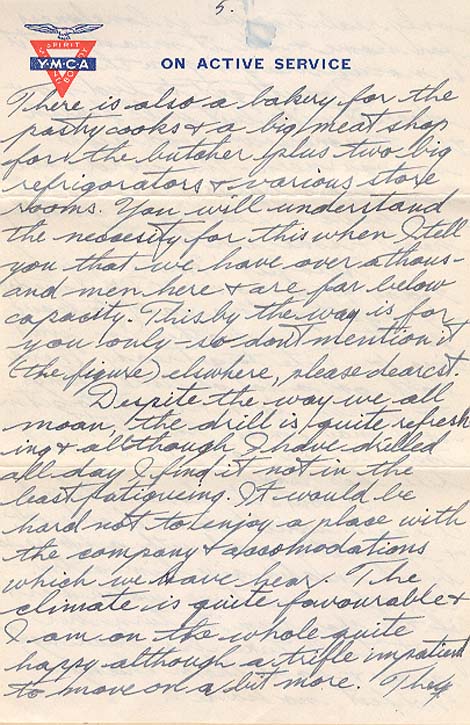 5.
SPIRIT
Y·M·C·A
ON ACTIVE SERVICE
There is also a bakery for the
pastry cooks & a big meat shop
for the butcher plus two big
refrigorators & various store
rooms. You will understand
the necessity for this when I tell
you that we have over a thous-
and men here & are far below
capacity. This by the way is for
you only - so don't mention it
(the figure) elsewhere, please dearest.
Despite the way we all
moan, the drill is quite refresh
ing & allthough I have drilled
all day I find it not in the
least fatigueing. It would be
hard not to enjoy a place with
the company & accomodations
which we have hear. The
climate is quite favourable &
I am on the whole quite
happy although a trifle impatient
to move on a bit more. They